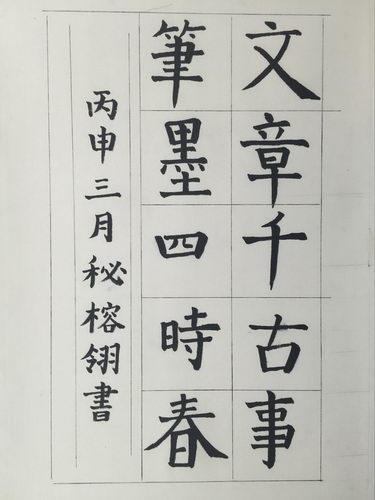 文章千古事
筆墨四時春
丙申三月秘榕翎書